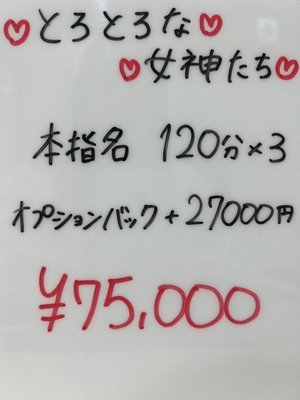 とろとろな
女神たち
本指名 120分×3
オプションバック+27000円
¥75,000